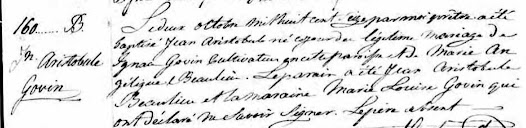 160 B.
Jn. Aristobule
Govin
Le deux octobre mil huit cent par moi prêtre a été
baptisé Jean Aristobule né ce jour de légitime mariage de
Ignace Govin Cultivateur en cette paroisse et de Marie An
gélique Beaulieu. Le parain a été Jean Aristobule
Beaulieu et la maraine Marie Louise Govin qui
ont déclaré ne savoir signer. Le père absent